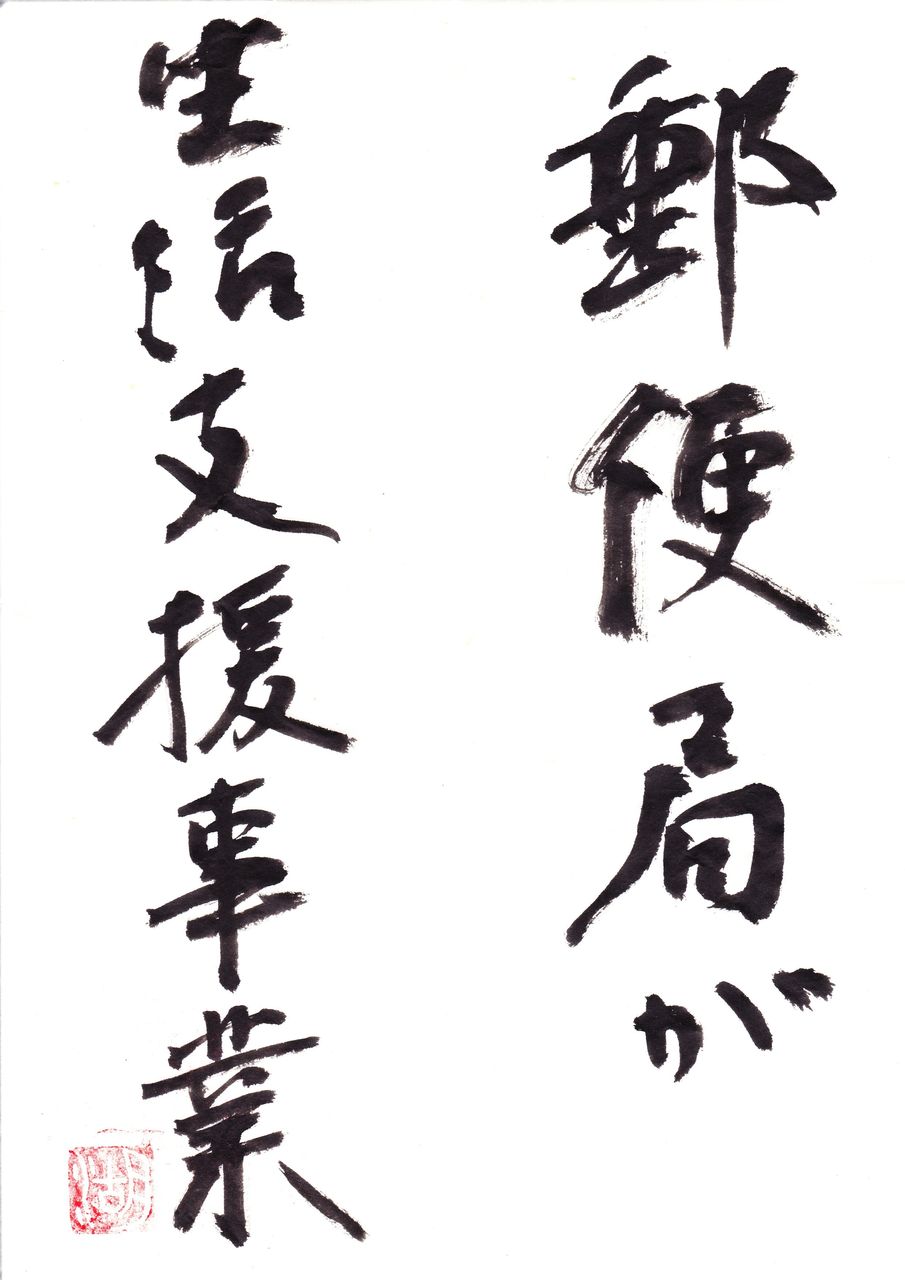 郵便局が
生活支援事業